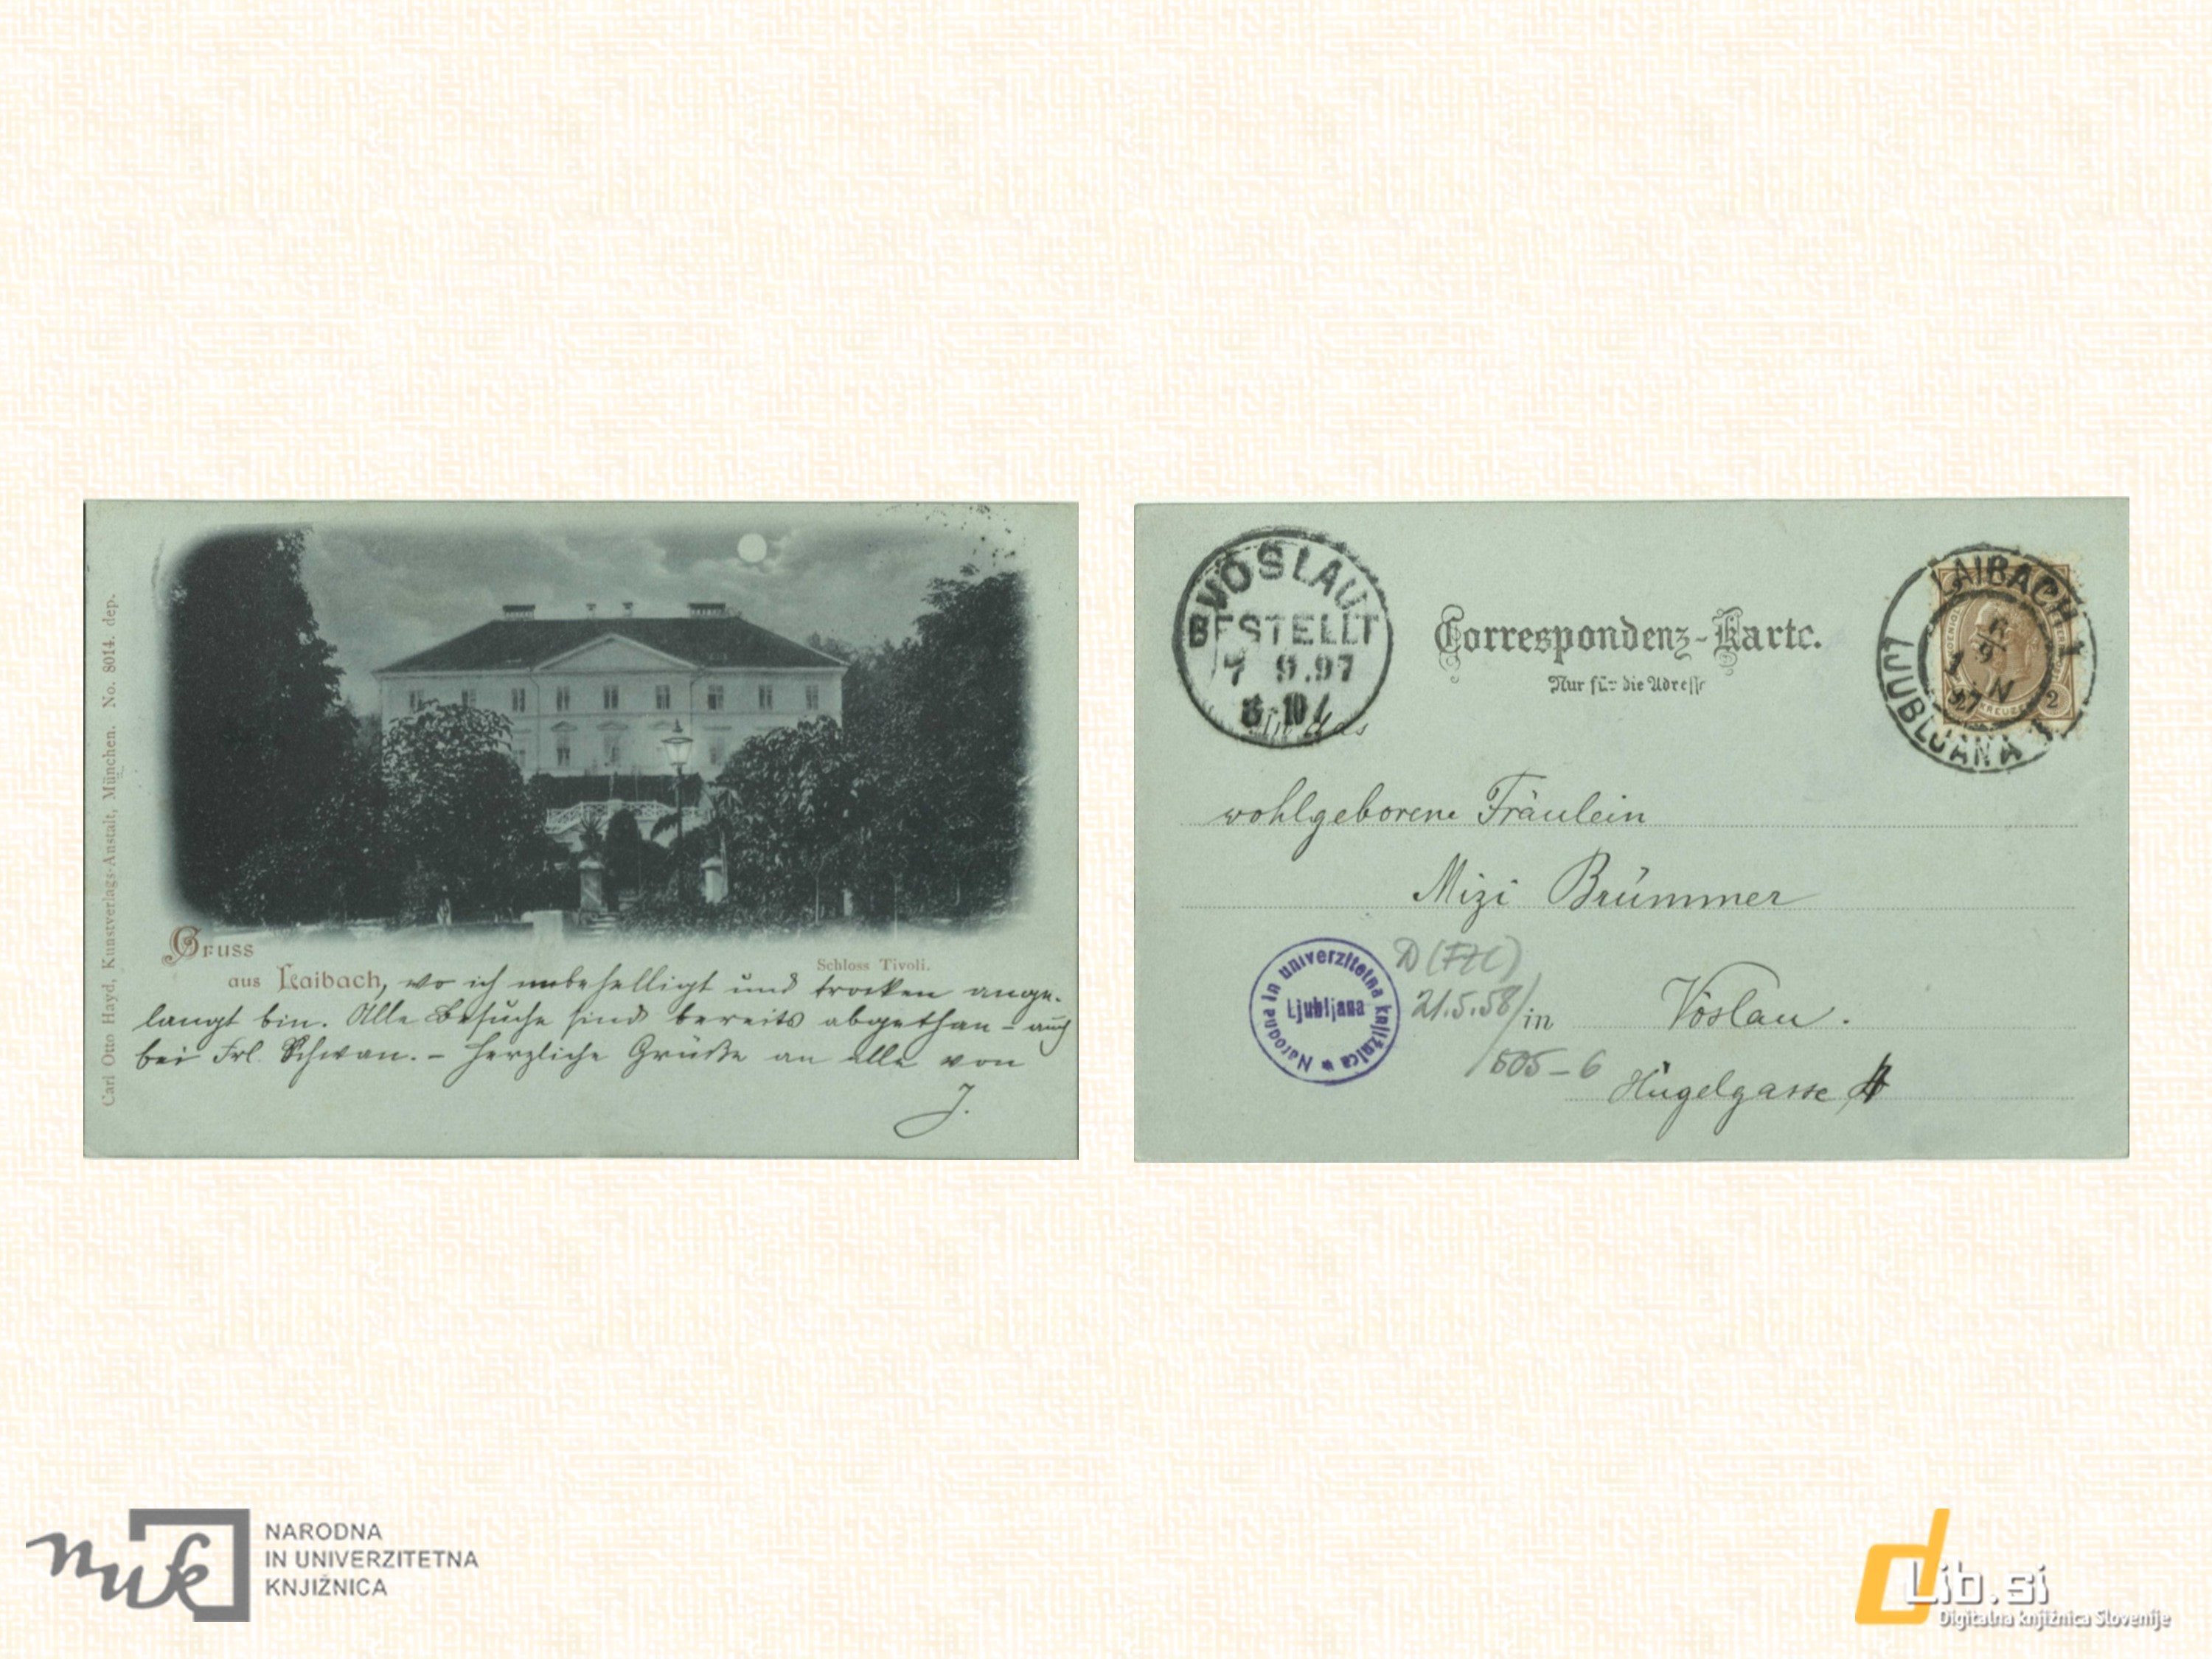 Carl Otto Hayd, Kunstverlags-Anstalt, München. No. 8014. dep.
Gruss
aus Laibach, wo ich unbehelligt und trocken ange-
Schloss Tivoli.
langt bin. Alle Besuche sind bereits abgethan - auch
bei Frl. Schwan. - Herzliche Grüße an alle von
J.
VÖSLAU
BESTELLT
7 9.97
Correspondenz-Karte.
Nur für die Adresse
LAIBACH 1
6/9
97
LJUBLJANA 1
2
wohlgeborene Fräulein
Mizi Brümmer
Narodna in univerzitetna knjižnica
Ljubljana
21.5.58/
505-6
in Vöslau.
Hügelgasse
nuk
NARODNA
IN UNIVERZITETNA
KNJIŽNICA
dLib.si
Digitalna knjižnica Slovenije